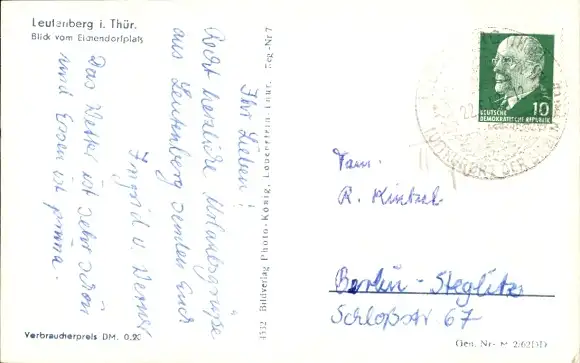 Leutenberg i. Thür.
Blick vom Eichendorfplatz
Ihr Lieben!
Recht herzliche Urlaubsgrüße
aus Leutenberg senden Euch
Ingrid u. Werner
Das Wetter ist sehr schön
und Essen ist prima.
Verbraucherpreis DM. 0.20
4332 Bildverlag Photo-König, Lobenstein-Thür. Reg-Nr 7
DEUTSCHE
DEMOKRATISCHE REPUBLIK
10
22
Fam.
R.
Berlin-Steglitz
Schloßstr 67
Gen. Nr. M 2/62DD